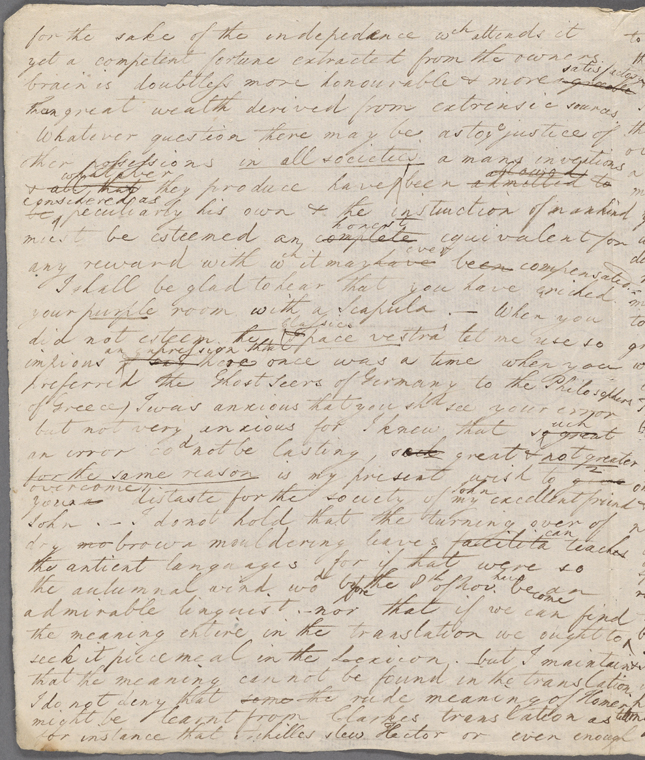 for the sake of the independance wch attends it
yet a competent fortune extracted from the owners
brain is doubtless more honourable & more satisfactory
than great wealth derived from extrinsic sources
Whatever question there may be as to ye justice of
other possessions in all societies a mans inventions
& all that whatever they produce have been allowed admitted to
considered as
be peculiarly his own & the instruction of mankind
must be esteemed an honest complete equivalent for
any reward with wch it may have ever been compensated
I shall be glad to hear that you have enriched
your purple room with a Scapula. — When you
did not esteem the classics (pace vestra let me use so
impious an expression there once was a time when you
preferred the Ghost Seers of Germany to the Philosophers
of Greece) I was anxious that you shd see your error
but not very anxious for I knew that such
an error cod not be lasting, great & not greater
for the same reason is my present wish to
overcome
your distaste for the society of my excellent friend
John
John. — . I do not hold that the turning over of
dry brown mouldering leaves can teaches
the antient languages for if that were so
the autumnal wind wod by the 8th of Nov. have become an
admirable linguist — nor that if we can find
the meaning entire in the translation we ought to
seek it piecemeal in the Lexicon. but I maintain
that the meaning cannot be found in the translation
I do not deny that some the rude meaning of Homer
might be learnt from Clarkes translation as
for instance that Achilles slew Hector or even enough